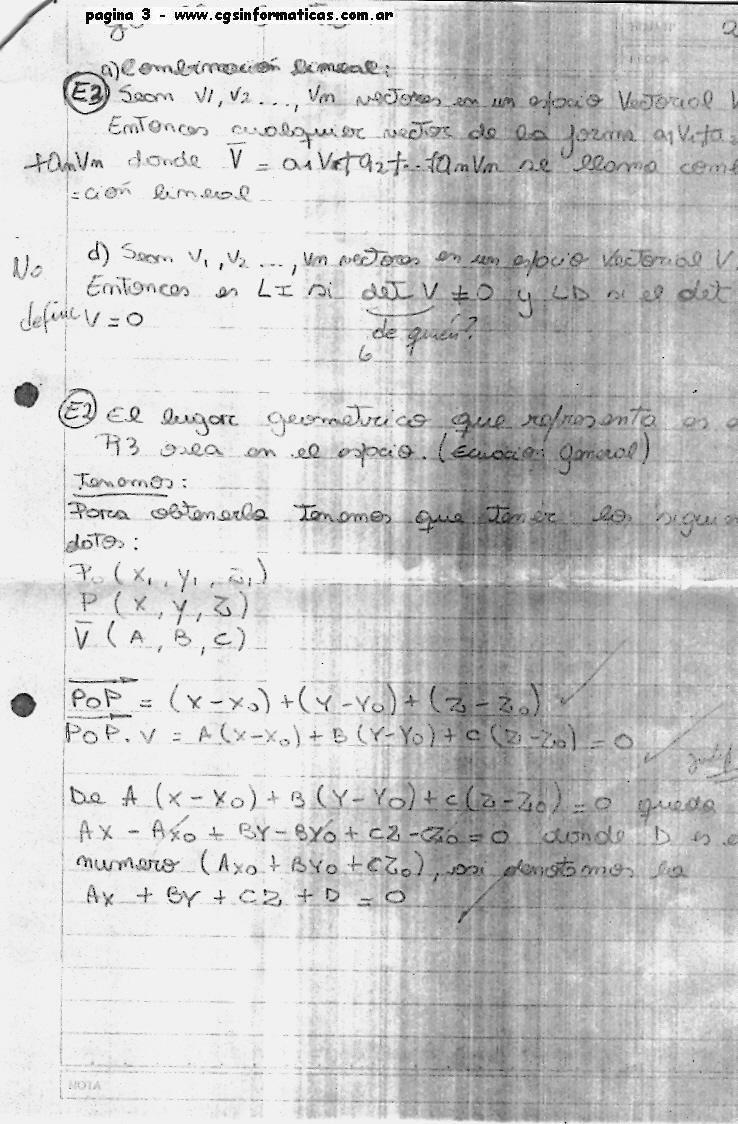 pagina 3 - www.cgsinformaticas.com.ar
a) Combinación lineal:
E3 Sean V1, V2 ..., Vn vectores en un espacio Vectorial V
Entonces cualquier vector de la forma a1V1+a2
+anVn donde V̅ = a1V1+a2+..+anVn se llama comb
=ción lineal
d) Sean V1, V2 ..., Vn vectores en un espacio Vectorial V.
No
Entonces es LI si det V ≠ 0 y LD si el det
define V = 0
de quién?
6
E2 El lugar geometrico que representa es
R3 osea en el espacio. (Ecuacion General)
Tenemos:
Para obtenerla tenemos que tener los siguien
datos:
P0 (X1, Y1, Z1)
P (X, Y, Z)
V̅ (A, B, C)
P0P = (X-X0)+(Y-Y0)+(Z-Z0)
P0P.V = A(X-X0)+B(Y-Y0)+C(Z-Z0)=0
De A (X-X0)+B(Y-Y0)+C(Z-Z0)=0 queda
AX - AX0 + BY-BY0+CZ-CZ0=0 donde D es e
numero (AX0+BY0+CZ0), asi denotamos la
AX + BY + CZ + D = 0
ATOM